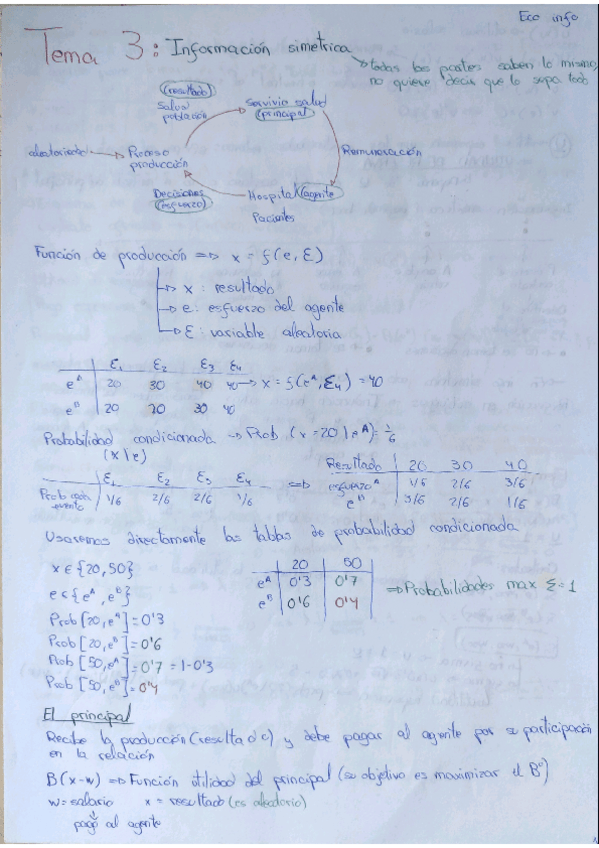 Eco info
Tema 3: Información simetrica
todas las partes saben lo mismo,
no quiere decir que lo sepa todo
(resultado)
Salud
población
Servivio salud
(principal)
aleatoriedad
Proceso
producción
Remuneración
Decisiones
(esfuerzo)
Hospital (agente)
Pacientes
Función de producción => x = f(e, ε)
→ x : resultado
→ e : esfuerzo del agente
→ ε : variable aleatoria
ε1 ε2 ε3 ε4
eᴬ 20 30 40 40 → x = f(eᴬ, ε4) = 40
eᴮ 20 20 30 40
Probabilidad condicionada → Prob (x=20 | eᴬ) = 1/6
(x | e)
ε1 ε2 ε3 ε4
Prob cada
evento 1/6 2/6 2/6 1/6
=>
Resultado 20 30 40
esfuerzo ᴬ 1/6 2/6 3/6
eᴮ 3/6 2/6 1/6
Usaremos directamente las tablas de probabilidad condicionada
x ∈ {20, 50}
e ∈ {eᴬ, eᴮ}
Prob [20, eᴬ] = 0'3
Prob [20, eᴮ] = 0'6
Prob [50, eᴬ] = 0'7 = 1-0'3
Prob [50, eᴮ] = 0'4
20 50
eᴬ 0'3 0'7
eᴮ 0'6 0'4
=> Probabilidades max Σ = 1
El principal
Recibe la producción (resultado) y debe pagar al agente por su participación
en la relación
B(x-w) => Función utilidad del principal (su objetivo es maximizar el Bº)
w = salario x = resultado (es aleatorio)
pago al agente